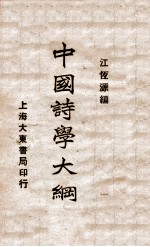 江恆源編
中國詩學大綱
上海大東書局印行